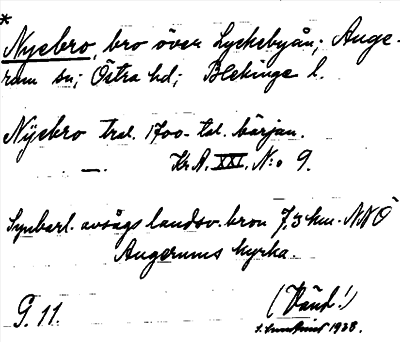 *
Nyebro, bro över Lyckebyån; Auge-
rum sn; Östra hd; Blekinge l.
Nÿebro trol. 1700-tal. början.
—„— Kr.A. XXI. N:o 9.
Synbarl. avsågs landsv. bron 7,3 km. NNÖ
Augerums kyrka.
(Vänd!)
G. 11.
1928.